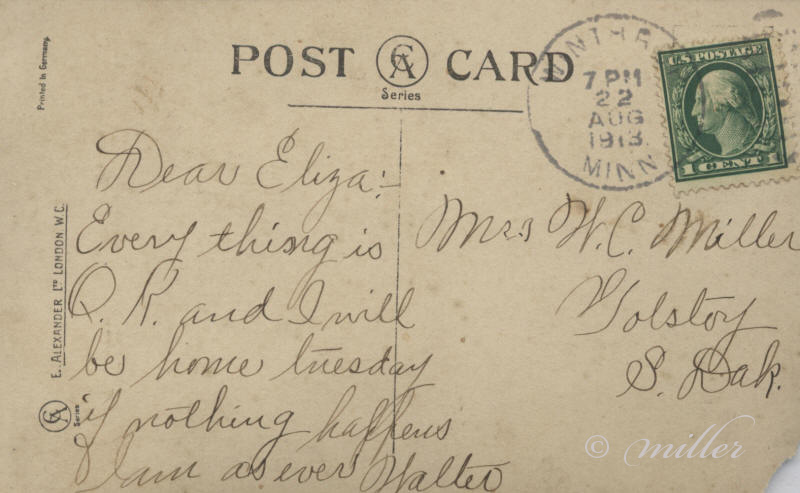 POST CA CARD
Series
Printed in Germany.
E. ALEXANDER LTD LONDON W.C.
CA Series
7 PM
22
AUG
1913
MINN
U.S. POSTAGE
1 CENT 1
Dear Eliza:-
Every thisng is
O. K. and I will
be home tuesday
if nothing haffens
I am as ever Walter
Mrs W. C. Miller
Tolstoy
S. Dak.
© miller